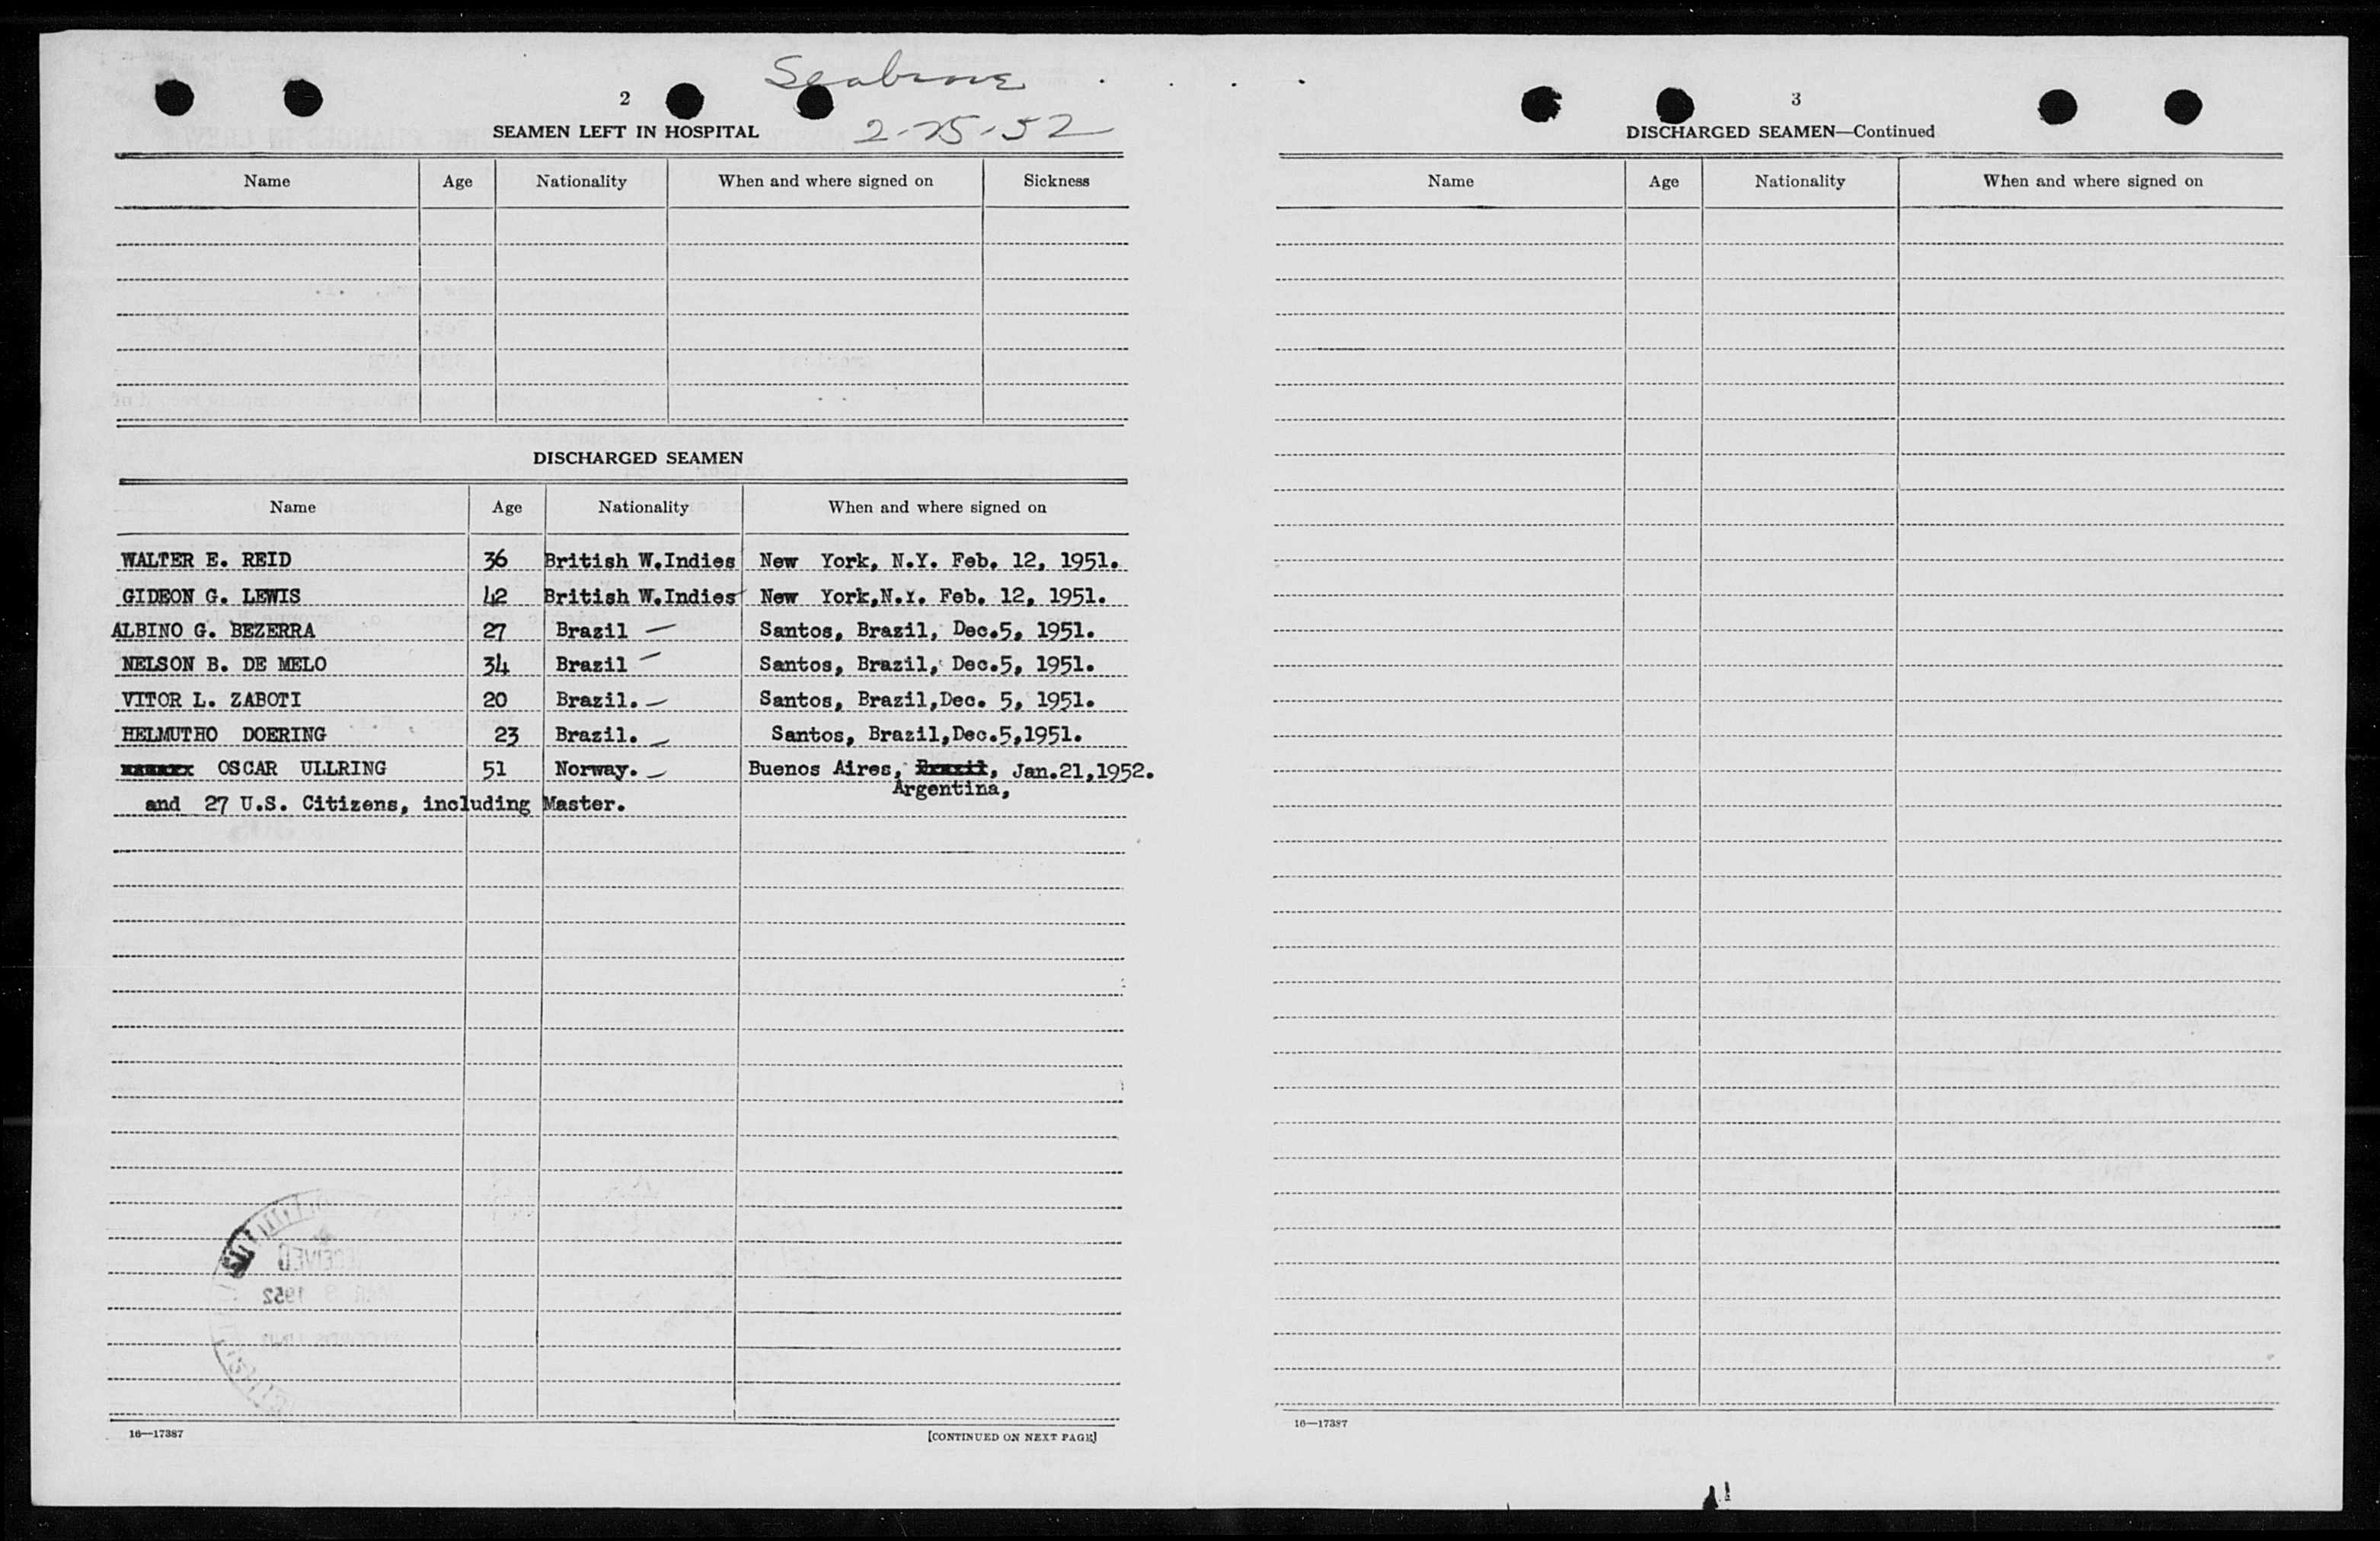 2
SEAMEN LEFT IN HOSPITAL
2-25-52
Name Age Nationality When and where signed on Sickness
DISCHARGED SEAMEN
Name Age Nationality When and where signed on
WALTER E. REID 36 British W.Indies New York, N.Y. Feb. 12, 1951.
GIDEON G. LEWIS 42 British W.Indies New York,N.Y. Feb. 12, 1951.
ALBINO G. BEZERRA 27 Brazil — Santos, Brazil, Dec.5, 1951.
NELSON B. DE MELO 34 Brazil — Santos, Brazil, Dec.5, 1951.
VITOR L. ZABOTI 20 Brazil. — Santos, Brazil,Dec. 5, 1951.
HELMUTHO DOERING 23 Brazil. — Santos, Brazil,Dec.5,1951.
OSCAR ULLRING 51 Norway. — Buenos Aires, Brazil, Jan.21,1952.
Argentina,
and 27 U.S. Citizens, including Master.
RECEIVED
MAR 8 1952
16—17387
[CONTINUED ON NEXT PAGE]
3
DISCHARGED SEAMEN—Continued
Name Age Nationality When and where signed on
16—17387